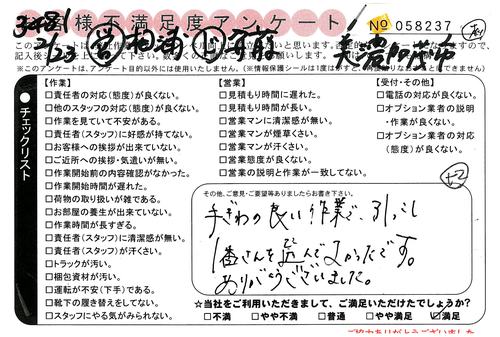 お客様不満足度アンケート
No 058237
34481
美濃加茂市
※このアンケートは、アンケート目的以外には使用いたしません。(※情報保護シールは1度はがすと、
チェックリスト
【作業】
□責任者の対応(態度)が良くない。
□他のスタッフの対応(態度)が良くない。
□作業を見ていて不安がある。
□責任者(スタッフ)に好感が持てない。
□お客様への挨拶が出来ていない。
□ご近所への挨拶・気遣いが無い。
□作業開始前の内容確認がなかった。
□作業開始時間が遅れた。
□荷物の取り扱いが雑である。
□お部屋の養生が出来ていない。
□作業時間が長すぎる。
□責任者(スタッフ)に清潔感が無い。
□責任者(スタッフ)が汗くさい。
□トラックが汚い。
□梱包資材が汚い。
□運転が不安(下手)である。
□靴下の履き替えをしてない。
□スタッフにやる気がみられない。
【営業】
□見積もり時間に遅れた。
□見積もり時間が長い。
□営業マンに清潔感が無い。
□営業マンが煙草くさい。
□営業マンが汗くさい。
□営業態度が良くない。
□営業の説明と作業が一致してない。
【受付・その他】
□電話の対応が良くない。
□オプション業者の説明
・作業が良くない。
□オプション業者の対応
(態度)が良くない。
その他、ご意見・ご要望等ありましたらお書き下さい。
手ぎわの良い作業で、引っこし
1番さんを選んでよかったです。
ありがとうございました。
☆当社をご利用いただきまして、ご満足いただけたでしょうか?
□不満 □やや不満 □普通 □やや満足 ☑満足
ご協力ありがとうございました